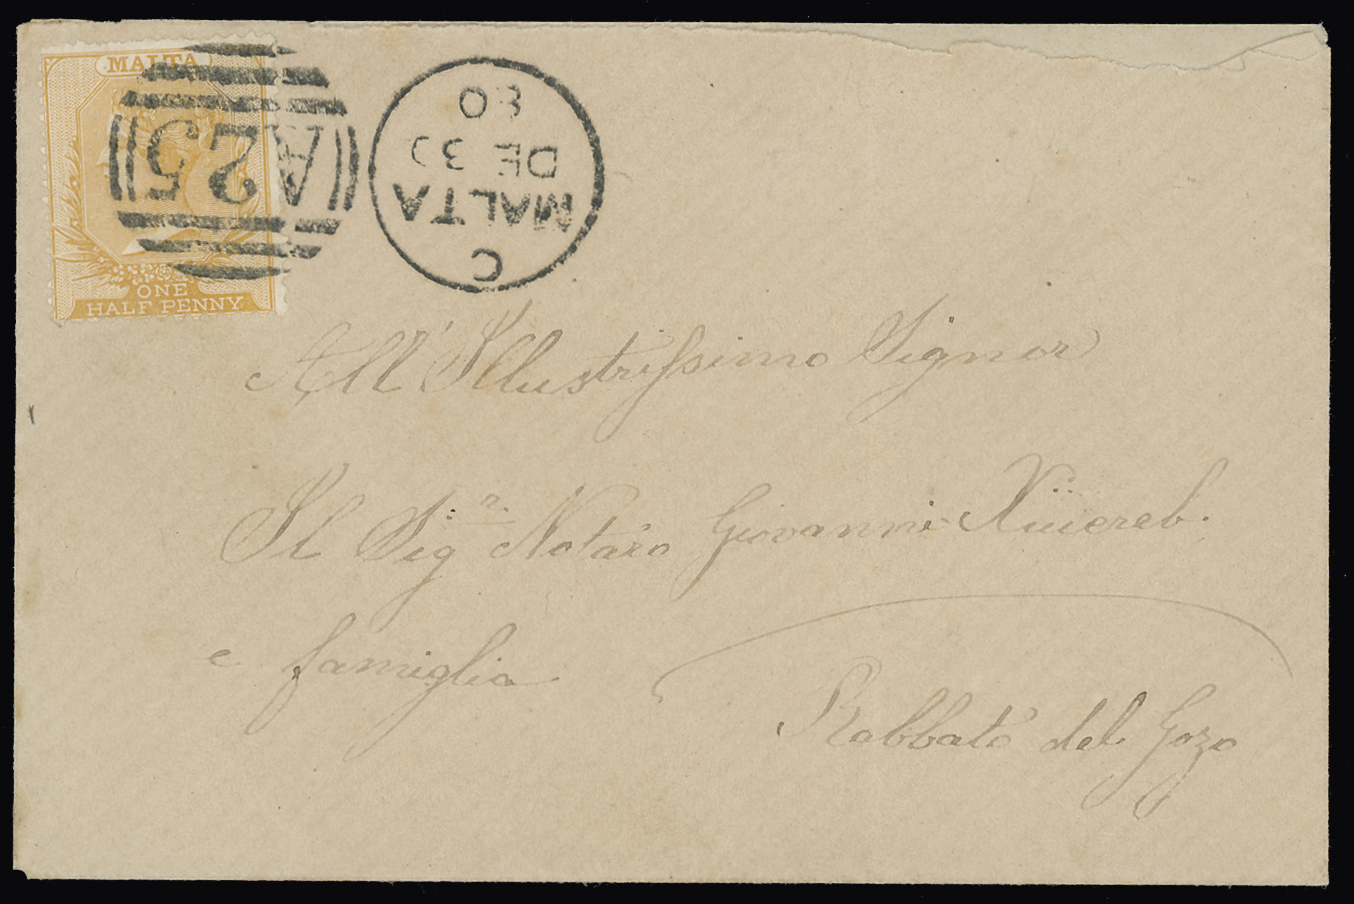 MALTA
A25
ONE
HALF PENNY
C
MALTA
DE 30
80
All' Illustrissimo Signor
Il Sigr. Notaro Giovanni Xüereb.
e famiglia
Rabbato del Gozo